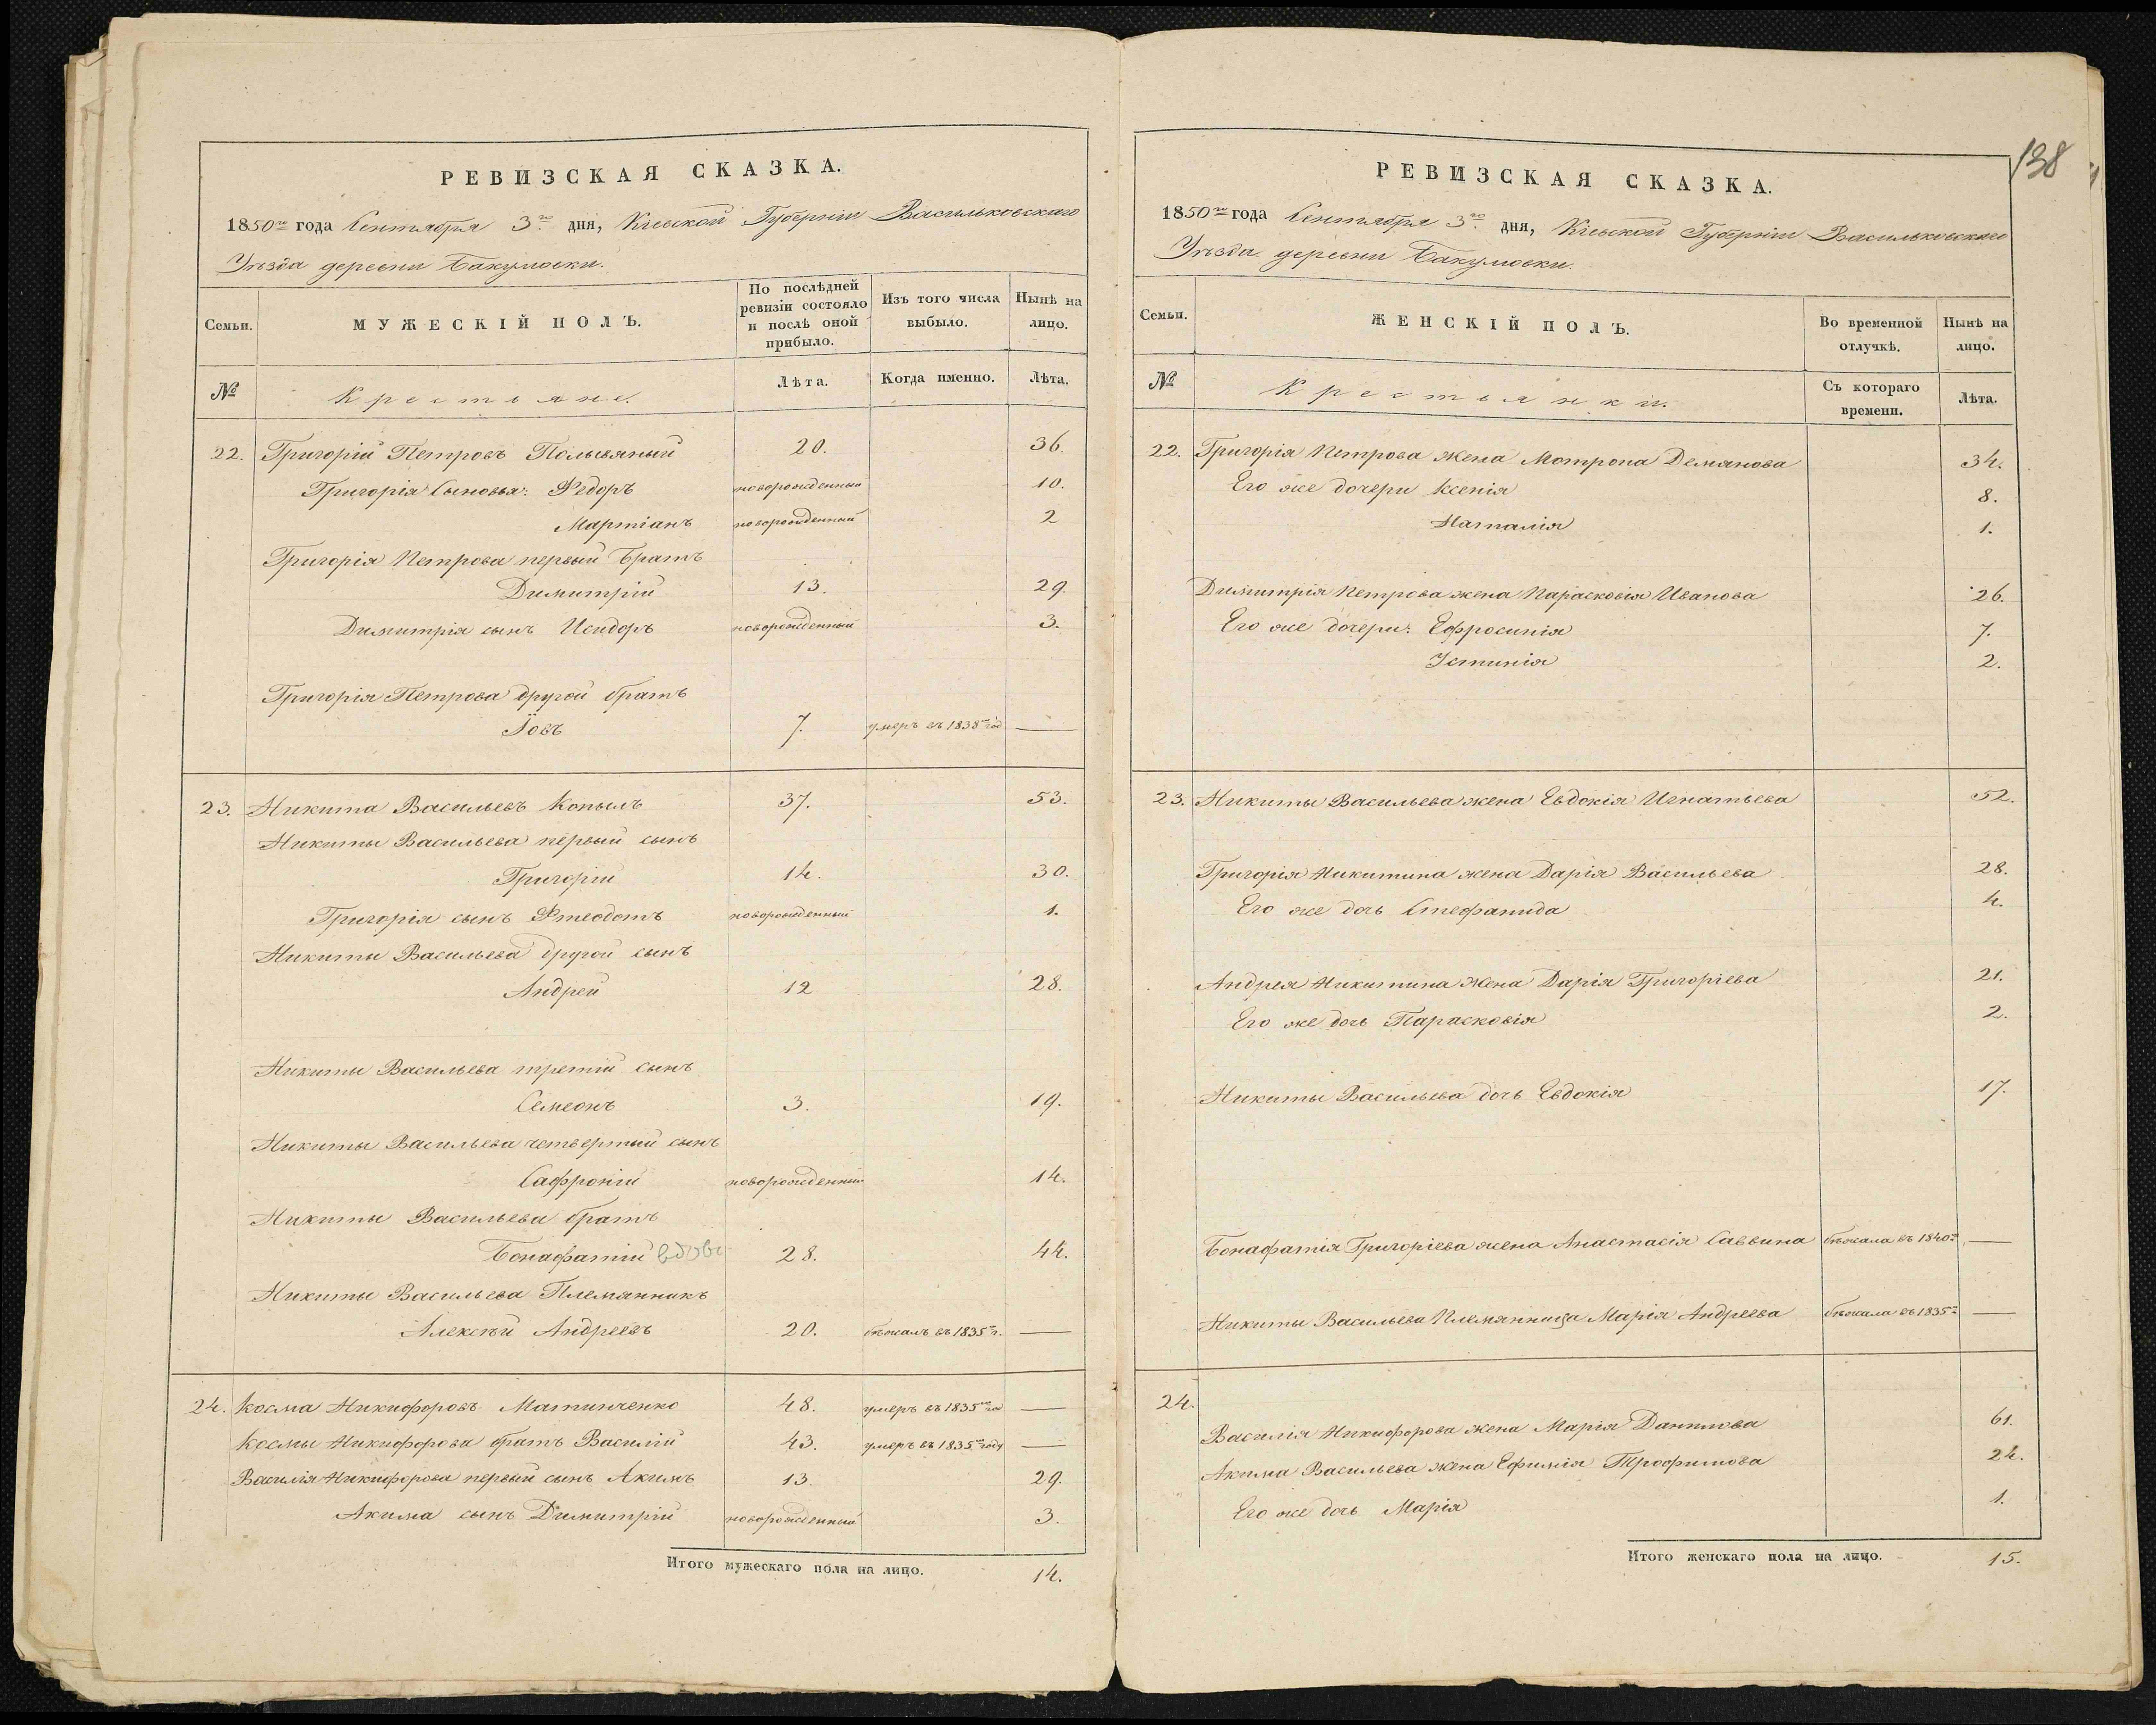 РЕВИЗСКАЯ СКАЗКА.
1850го года Сентября 3го дня, Кіевской Губерніи Васильковскаго
Уѣзда деревни Бакумовки.
Семьи.
МУЖЕСКІЙ ПОЛЪ.
По послѣдней ревизіи состояло и послѣ оной прибыло.
Изъ того числа выбыло.
Нынѣ на лицо.
№
Крестьяне.
Лѣта.
Когда именно.
Лѣта.
22. Григорій Петровъ Польвяный 20. 36.
Григорія Сыновья: Ѳедоръ новорожденный 10.
Мартіанъ новорожденный 2
Григорія Петрова первый братъ
Димитрій 13. 29.
Димитрія сынъ Исидоръ новорожденный 3.
Григорія Петрова другой братъ
Іовъ 7. умеръ въ 1838мъ год —
23. Никита Васильевъ Копылъ 37. 53.
Никиты Васильева первый сынъ
Григорій 14. 30.
Григорія сынъ Ѳтеодотъ новорожденный 1.
Никиты Васильева другой сынъ
Андрей 12 28.
Никиты Васильева третій сынъ
Семеонъ 3. 19.
Никиты Васильева четвертый сынъ
Сафроній новорожденный 14.
Никиты Васильева братъ
Бонафатій вдов 28. 44.
Никиты Васильева Племянникъ
Алексѣй Андреевъ 20. бѣжалъ въ 1835мъ г. —
24. Косма Никифоровъ Матинченко 48. умеръ въ 1835мъ год —
Космы Никифорова братъ Василій 43. умеръ въ 1835мъ году —
Василія Никифорова первый сынъ Акимъ 13. 29.
Акима сынъ Димитрій новорожденный 3.
Итого мужескаго пола на лицо. 14.
138
РЕВИЗСКАЯ СКАЗКА.
1850го года Сентября 3го дня, Кіевской Губерніи Васильковскаго
Уѣзда деревни Бакумовки.
Семьи.
ЖЕНСКІЙ ПОЛЪ.
Во временной отлучкѣ.
Нынѣ на лицо.
№
Крестьянки.
Съ котораго времени.
Лѣта.
22. Григорія Петрова жена Мотрона Демянова 34.
Его же дочери Ксенія 8.
Наталія 1.
Димитрія Петрова жена Парасковія Иванова 26.
Его же дочери: Ефросинія 7.
Устинія 2.
23. Никиты Васильева жена Евдокія Игнатьева 52.
Григорія Никитина жена Дарія Васильева 28.
Его же дочь Стефанида 4.
Андрея Никитина жена Дарія Григоріева 21.
Его же дочь Парасковія 2.
Никиты Васильева дочь Евдокія 17.
Бонафатія Григоріева жена Анастасія Саввина бѣжала въ 1840мъ —
Никиты Васильева Племянница Марія Андреева бѣжала въ 1835мъ —
24.
Василія Никифорова жена Марія Данилова 61.
Акима Васильева жена Ефимія Трофимова 24.
Его же дочь Марія 1.
Итого женскаго пола на лицо. 15.